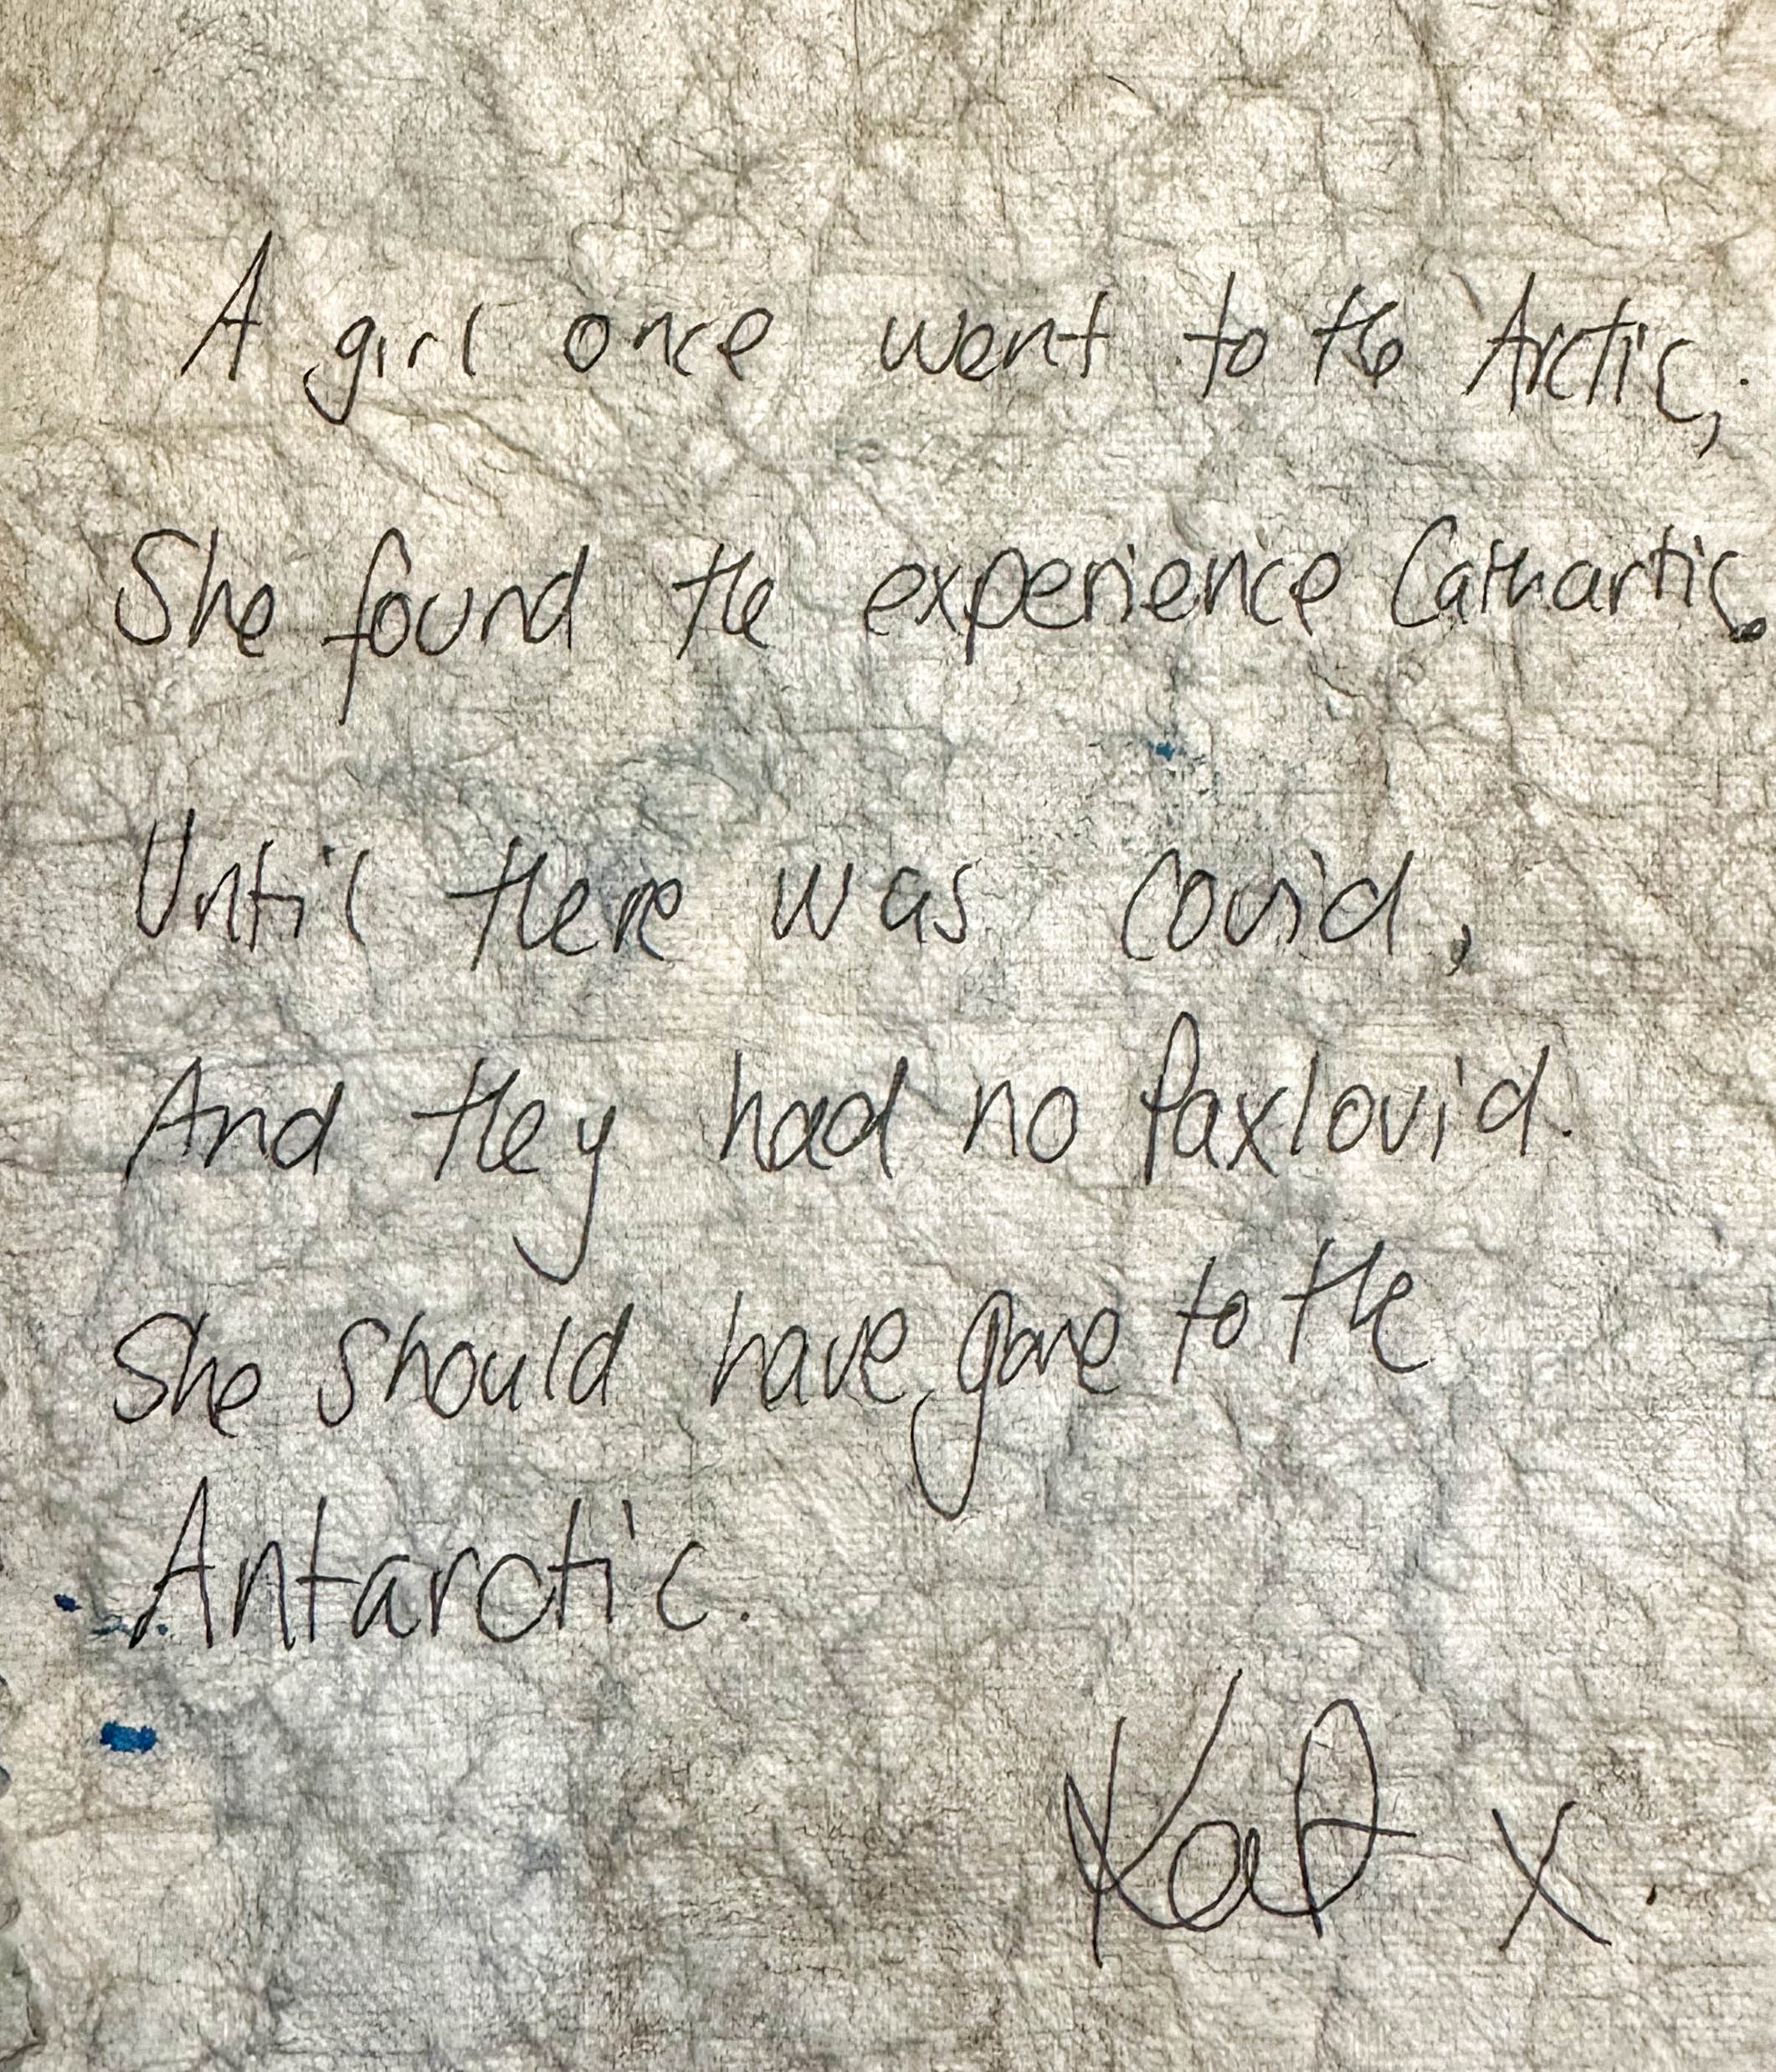 A girl once went to the Arctic,
She found the experience Cathartic.
Until there was Covid,
And they had no Paxlovid.
She should have gone to the
Antarctic.
Kat x